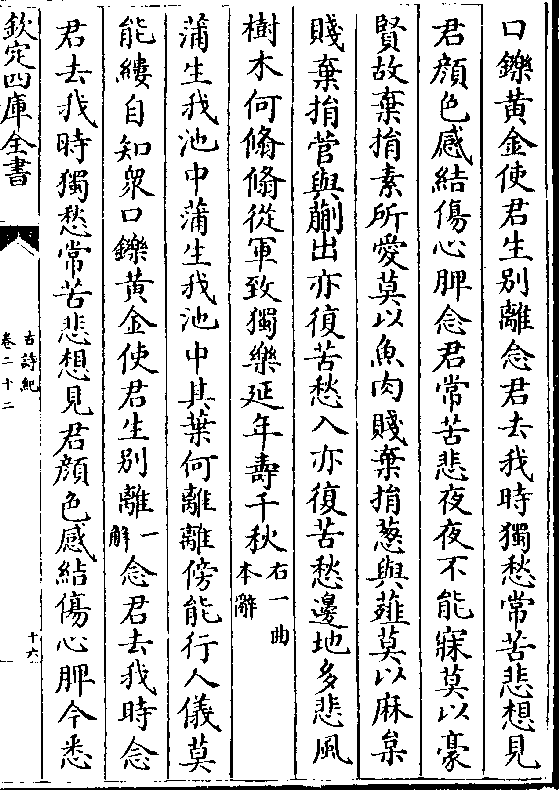 口鑠黃金使君生别離念君去我時獨愁常苦悲想見
君顔色感結傷心脾念君常苦悲夜夜不能寐莫以豪
賢故棄捐素所愛莫以魚肉賤棄捐葱與薤莫以麻枲
賤棄捐菅與蒯出亦復苦愁入亦復苦愁邊地多悲風
樹木何翛翛從軍致獨樂延年壽千秋右一曲本辭
蒲生我池中蒲生我池中其葉何離離傍能行人儀莫
能縷自知衆口鑠黃金使君生别離一解念君去我時念
君去我時獨愁常苦悲想見君顔色感結傷心脾今悉
欽定四庫全書
古詩紀
卷二十二
十六